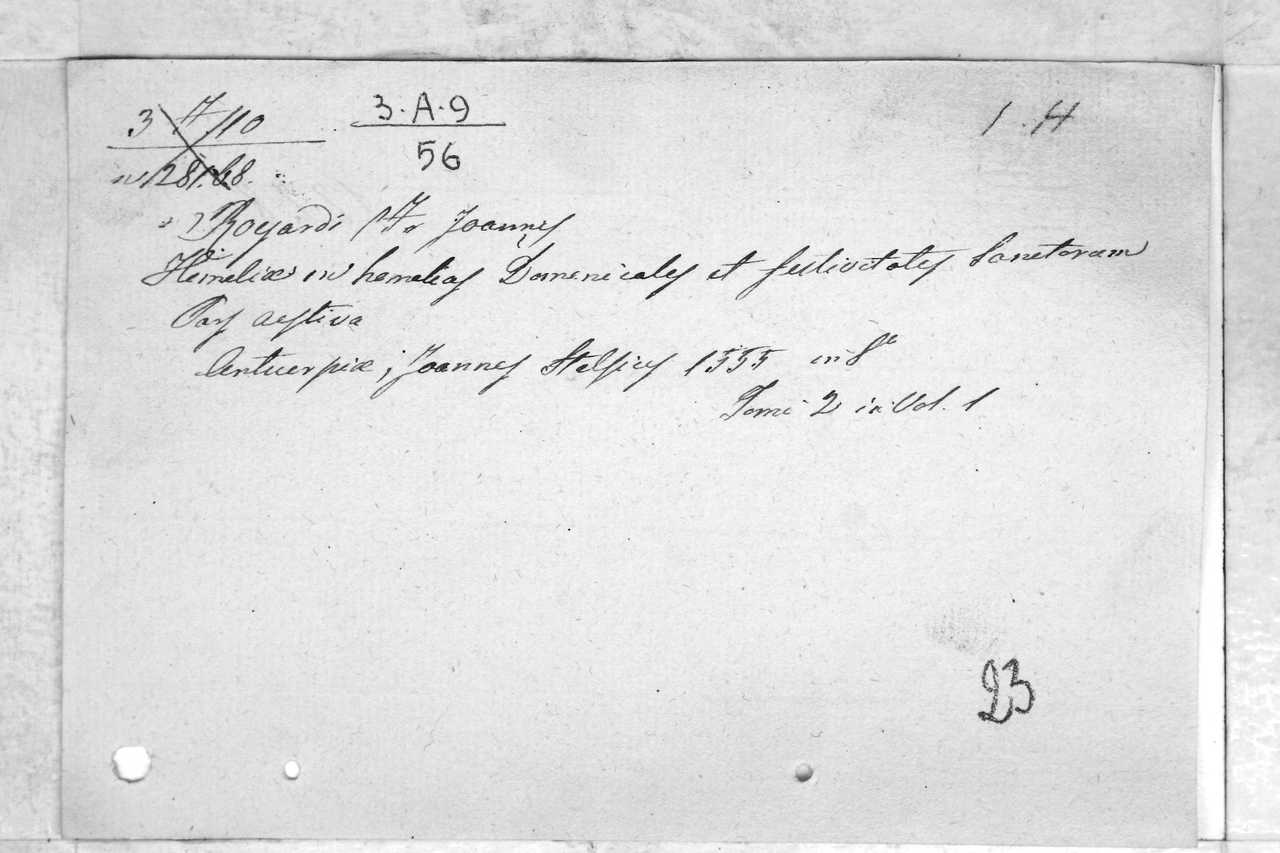 3 A/10 3·A·9 1. H
n 281.68. 56
Royardi Fr Joannes
Homeliæ in homelias Domenicales et festivitates Sanctorum
Pars aestiva
Antuerpiæ, Joannes Stelsius 1555 in 8º
Tomi 2 in Vol. 1
23